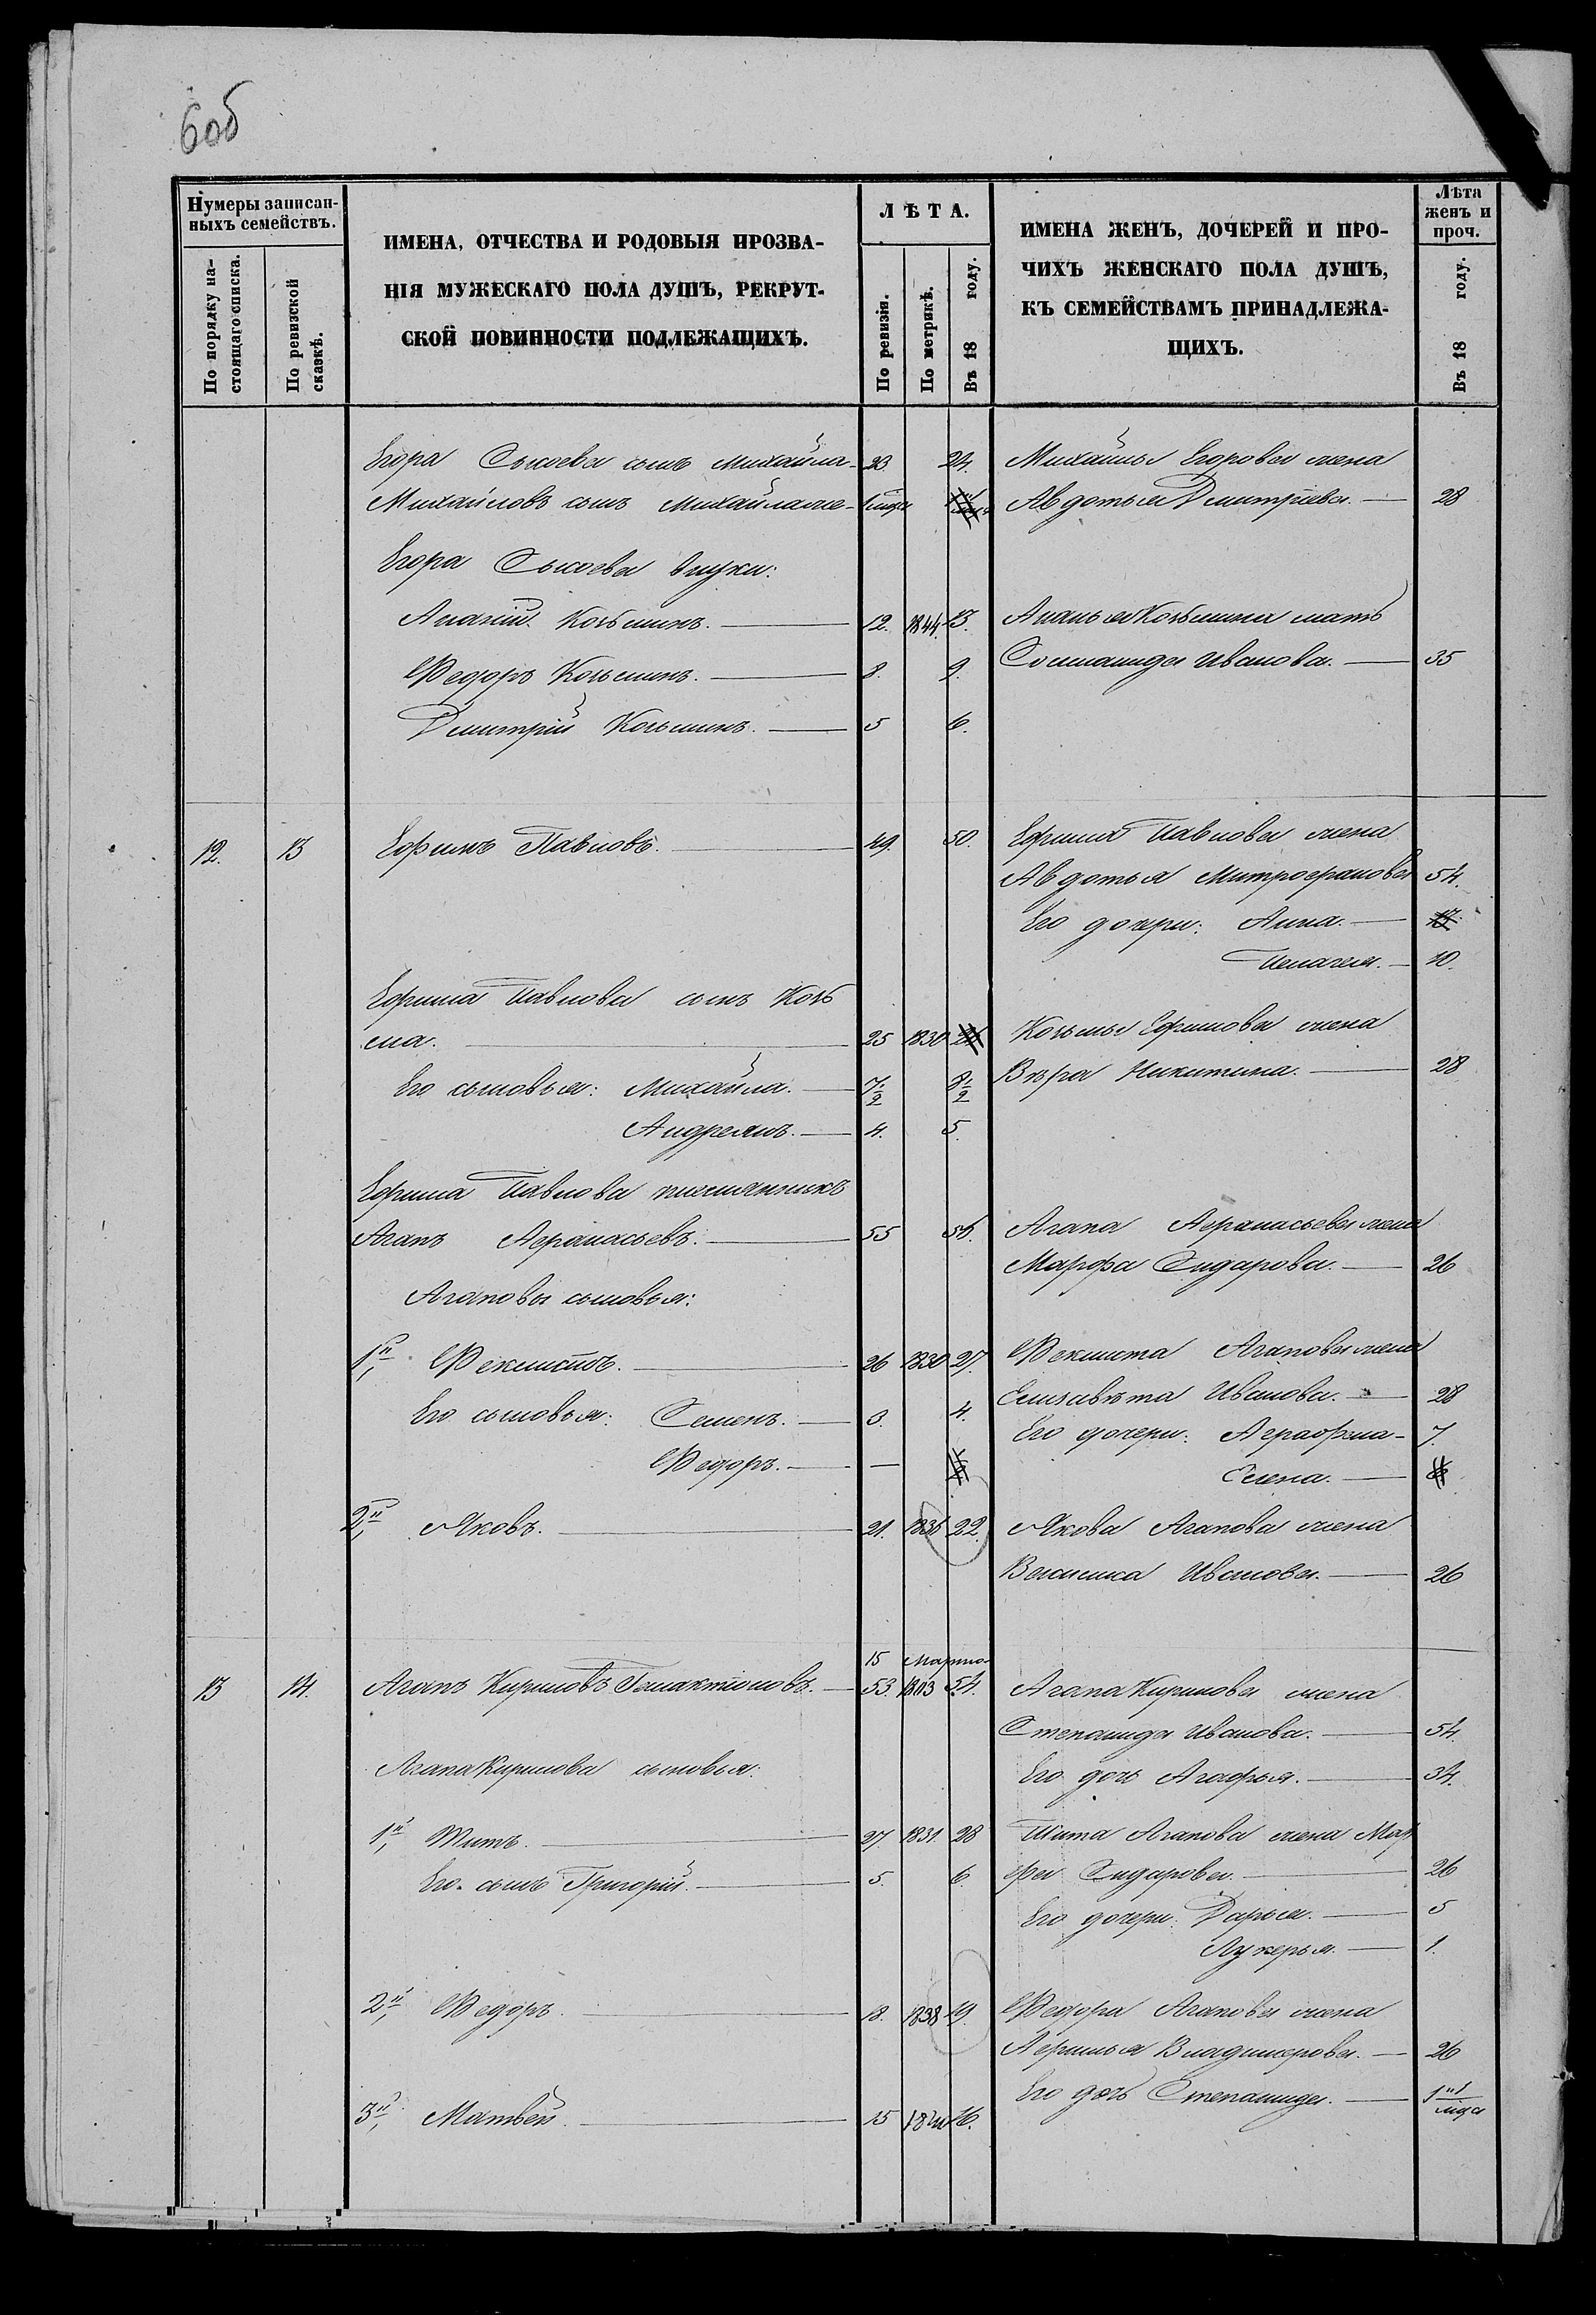 6об
Нумеры записан-
ныхъ семействъ.
По порядку на-
стоящаго списка.
По ревизской
сказкѣ.
ИМЕНА, ОТЧЕСТВА И РОДОВЫЯ ПРОЗВА-
НІЯ МУЖЕСКАГО ПОЛА ДУШЪ, РЕКРУТ-
СКОЙ ПОВИННОСТИ ПОДЛЕЖАЩИХЪ.
ЛѢТА.
По ревизіи.
По метрикѣ.
Въ 18 году.
ИМЕНА ЖЕНЪ, ДОЧЕРЕЙ И ПРО-
ЧИХЪ ЖЕНСКАГО ПОЛА ДУШЪ,
КЪ СЕМЕЙСТВАМЪ ПРИНАДЛЕЖА-
ЩИХЪ.
Лѣта
женъ и
проч.
Въ 18 году.
Егора Сысоева сынъ Михайла 23. 24. Михайлы Егорова жена
Михайловъ сынъ Авдотья Дмитріева. 28
Егора Сысоева внуки:
Ананій Козьминъ. 12. 1844. 13. Ананья Козьмина мать
Федоръ Козьминъ. 8. 9. Соломанида Иванова. 35
Дмитрій Козьминъ. 5 6.
12. 13 Ефимъ Павловъ. 49. 50. Ефима Павлова жена
Авдотья Митрофанова 54.
Его дочери: Анна.
Пелагея. 10.
Ефима Павлова сынъ Козь
ма. 25 1830 26 Козьмы Ефимова жена
Его сыновья: Михайла. 7 1/2 8 1/2 Вѣра Никитина. 28
Андреянъ. 4. 5.
Ефима Павлова племянникъ
Агапъ Афанасьевъ. 55 56. Агапа Афанасьева жена
Марфа Сидарова. 26
Агаповы сыновья:
1й, Феклистъ. 26 1830 27. Феклиста Агапова жена
Елизавѣта Иванова. 28
Его сыновья: Семенъ. 3. 4. Его дочери: Аграфна 7.
Федоръ. — Елена.
2й, Яковъ. 21. 1836 22. Якова Агапова жена
Иванова. 26
15 Марта
13 14. Агапъ Кириловъ Галактіоновъ. 53. 1803 54. Агапа Кирилова жена
Степанида Иванова. 54.
Агапа Кирилова сыновья: Его дочь Агафья. 34.
1й, Титъ. 27. 1831. 28 Тита Агапова жена Мар
Его сынъ Григорій. 5. 6. фа Сидарова. 26
Его дочери: Дарья. 5
Лукерья. 1.
2й, Федоръ. 18. 1838 19. Федора Агапова жена
Афимья Владимерова. 26
Его дочь Степанида.
3й, Матвей. 15 16.